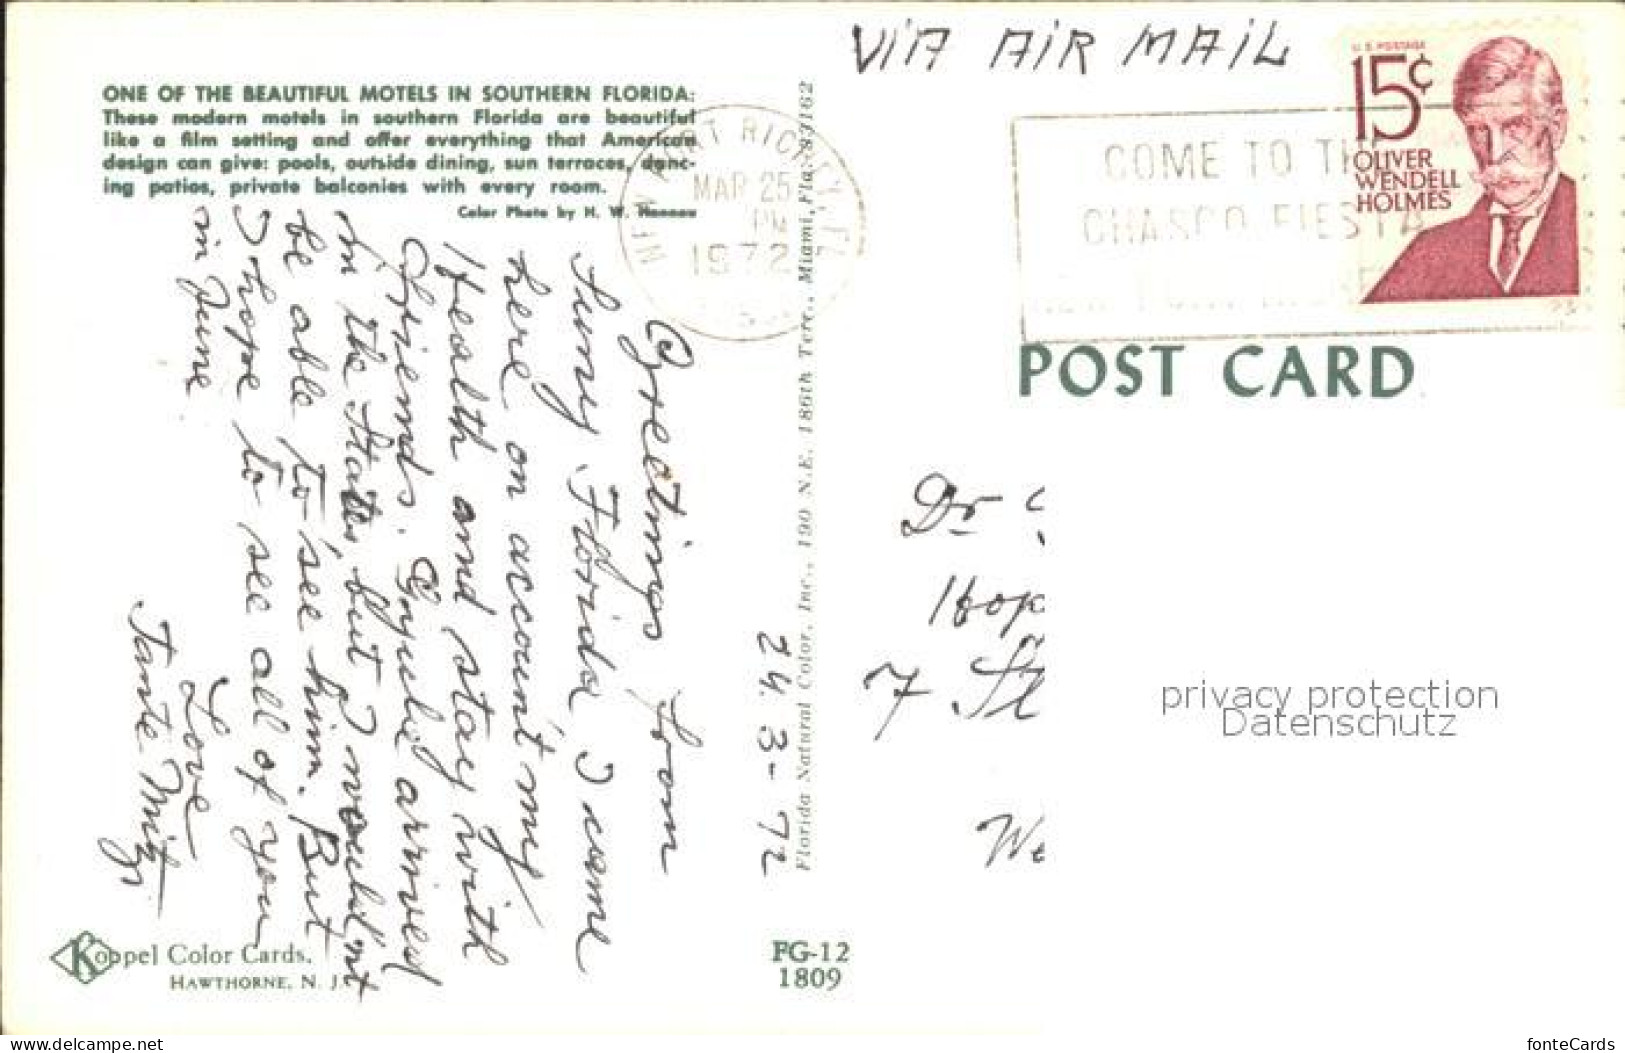 VIA AIR MAIL
ONE OF THE BEAUTIFUL MOTELS IN SOUTHERN FLORIDA:
These modern motels in southern Florida are beautiful
like a film setting and offer everything that American
design can give: pools, outside dining, sun terraces, danc-
ing patios, private balconies with every room.
Color Photo by H. W. Hannau
U.S. POSTAGE
15¢
OLIVER
WENDELL
HOLMES
MAR 25
PM
1972
COME TO
CHASCO FIESTA
POST CARD
24.3-72
Greetings from
Sunny Florida I came
here on account my
Health and stay with
Friends. arrived
in the States, but I would'nt
be able to see him. But
I hope to see all of you
in June
Love
Tante Mitzi
Florida Natural Color, Inc., 190 N.E. 186th Terr., Miami, Fla. 33162
Dr
7
privacy protection
Datenschutz
Koppel Color Cards.
HAWTHORNE, N. J.
FG-12
1809
www.delcampe.net
fonteCards